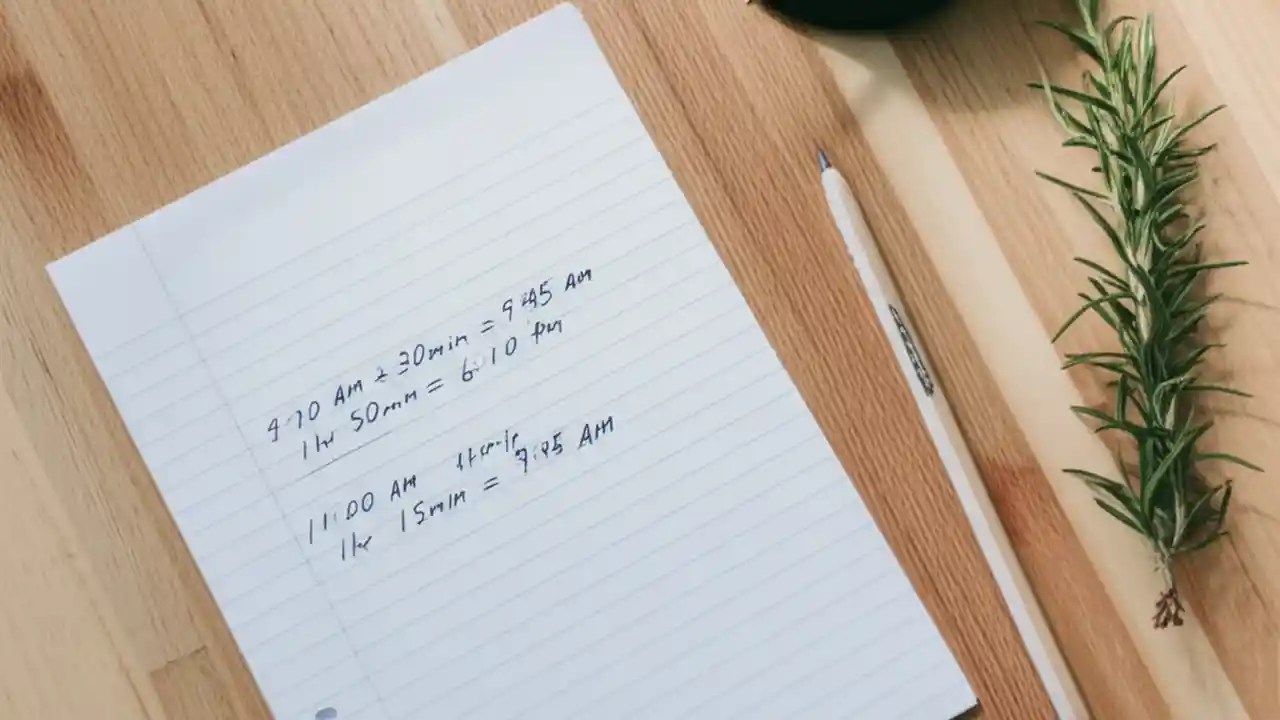 30min = 9:45 AM
1hr 50min = 6:10 PM
11:00 AM
1hr 15min = 9:45 AM